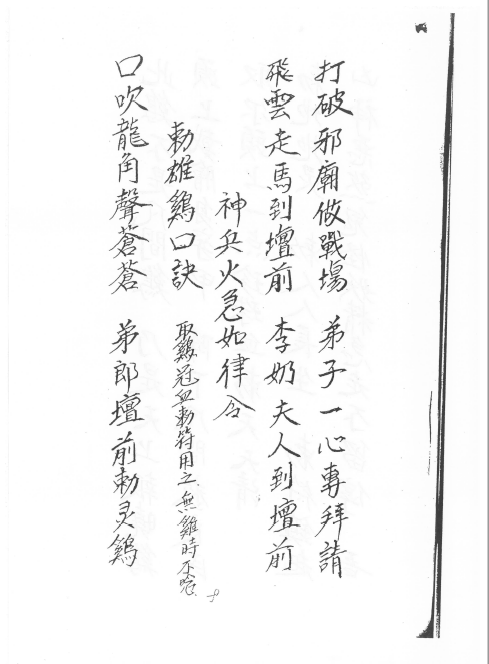 打破邪廟做戰場 弟子一心專拜請
飛雲走馬到壇前 李奶夫人到壇前
神兵火急如律令
勅雄鷄口訣 取鷄冠血勅符用之無雞時不唸
口吹龍角聲蒼蒼 弟郎壇前勅灵鷄